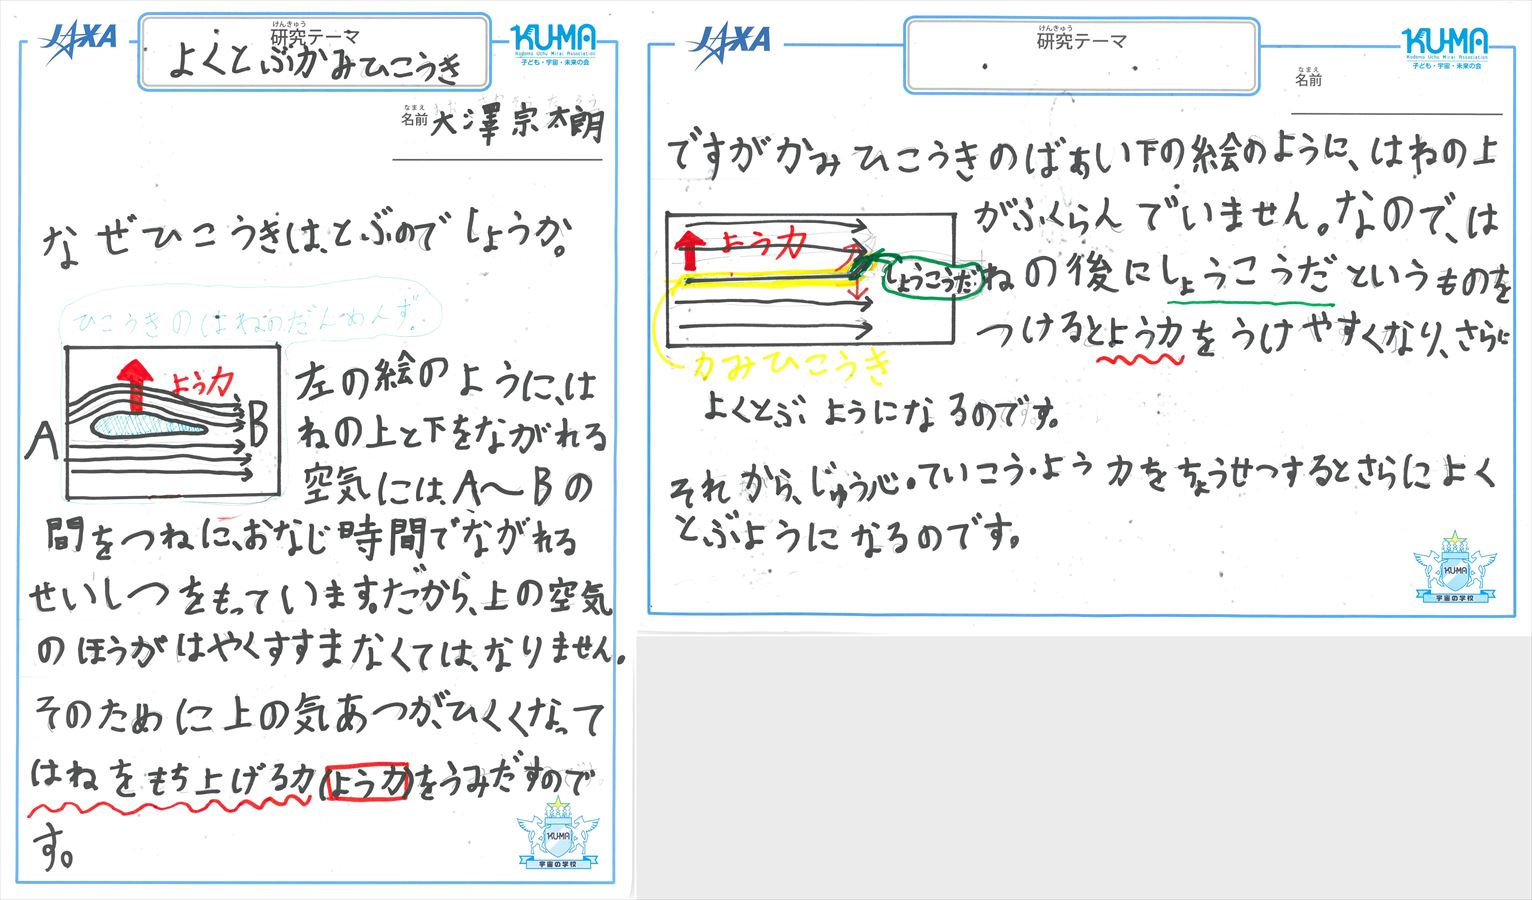 JAXA
けんきゅう
研究テーマ
よくとぶかみひこうき
KUMA
Kodomo Uchu Mirai Association
子ども・宇宙・未来の会
なまえ
名前 大澤宗太朗
なぜひこうきは、とぶのでしょうか。
ひこうきのはねのだんめんず。
よう力
A
B
左の絵のように、は
ねの上と下をながれる
空気には、A〜Bの
間をつねに、おなじ時間でながれる
せいしつをもっています。だから、上の空気
のほうがはやくすすまなくては、なりません。
そのために上の気あつが、ひくくなって
はねをもち上げる力(よう力)をうみだすので
す。
KUMA
宇宙の学校
JAXA
けんきゅう
研究テーマ
KUMA
Kodomo Uchu Mirai Association
子ども・宇宙・未来の会
なまえ
名前
ですがかみひこうきのばあい下の絵のように、はねの上
がふくらんでいません。なので、は
ねの後にしょうこうだというものを
つけるとよう力をうけやすくなり、さらに
よう力
しょうこうだ
かみひこうき
よくとぶようになるのです。
それから、じゅう心・ていこう・よう力をちょうせつするとさらによく
とぶようになるのです。
KUMA
宇宙の学校